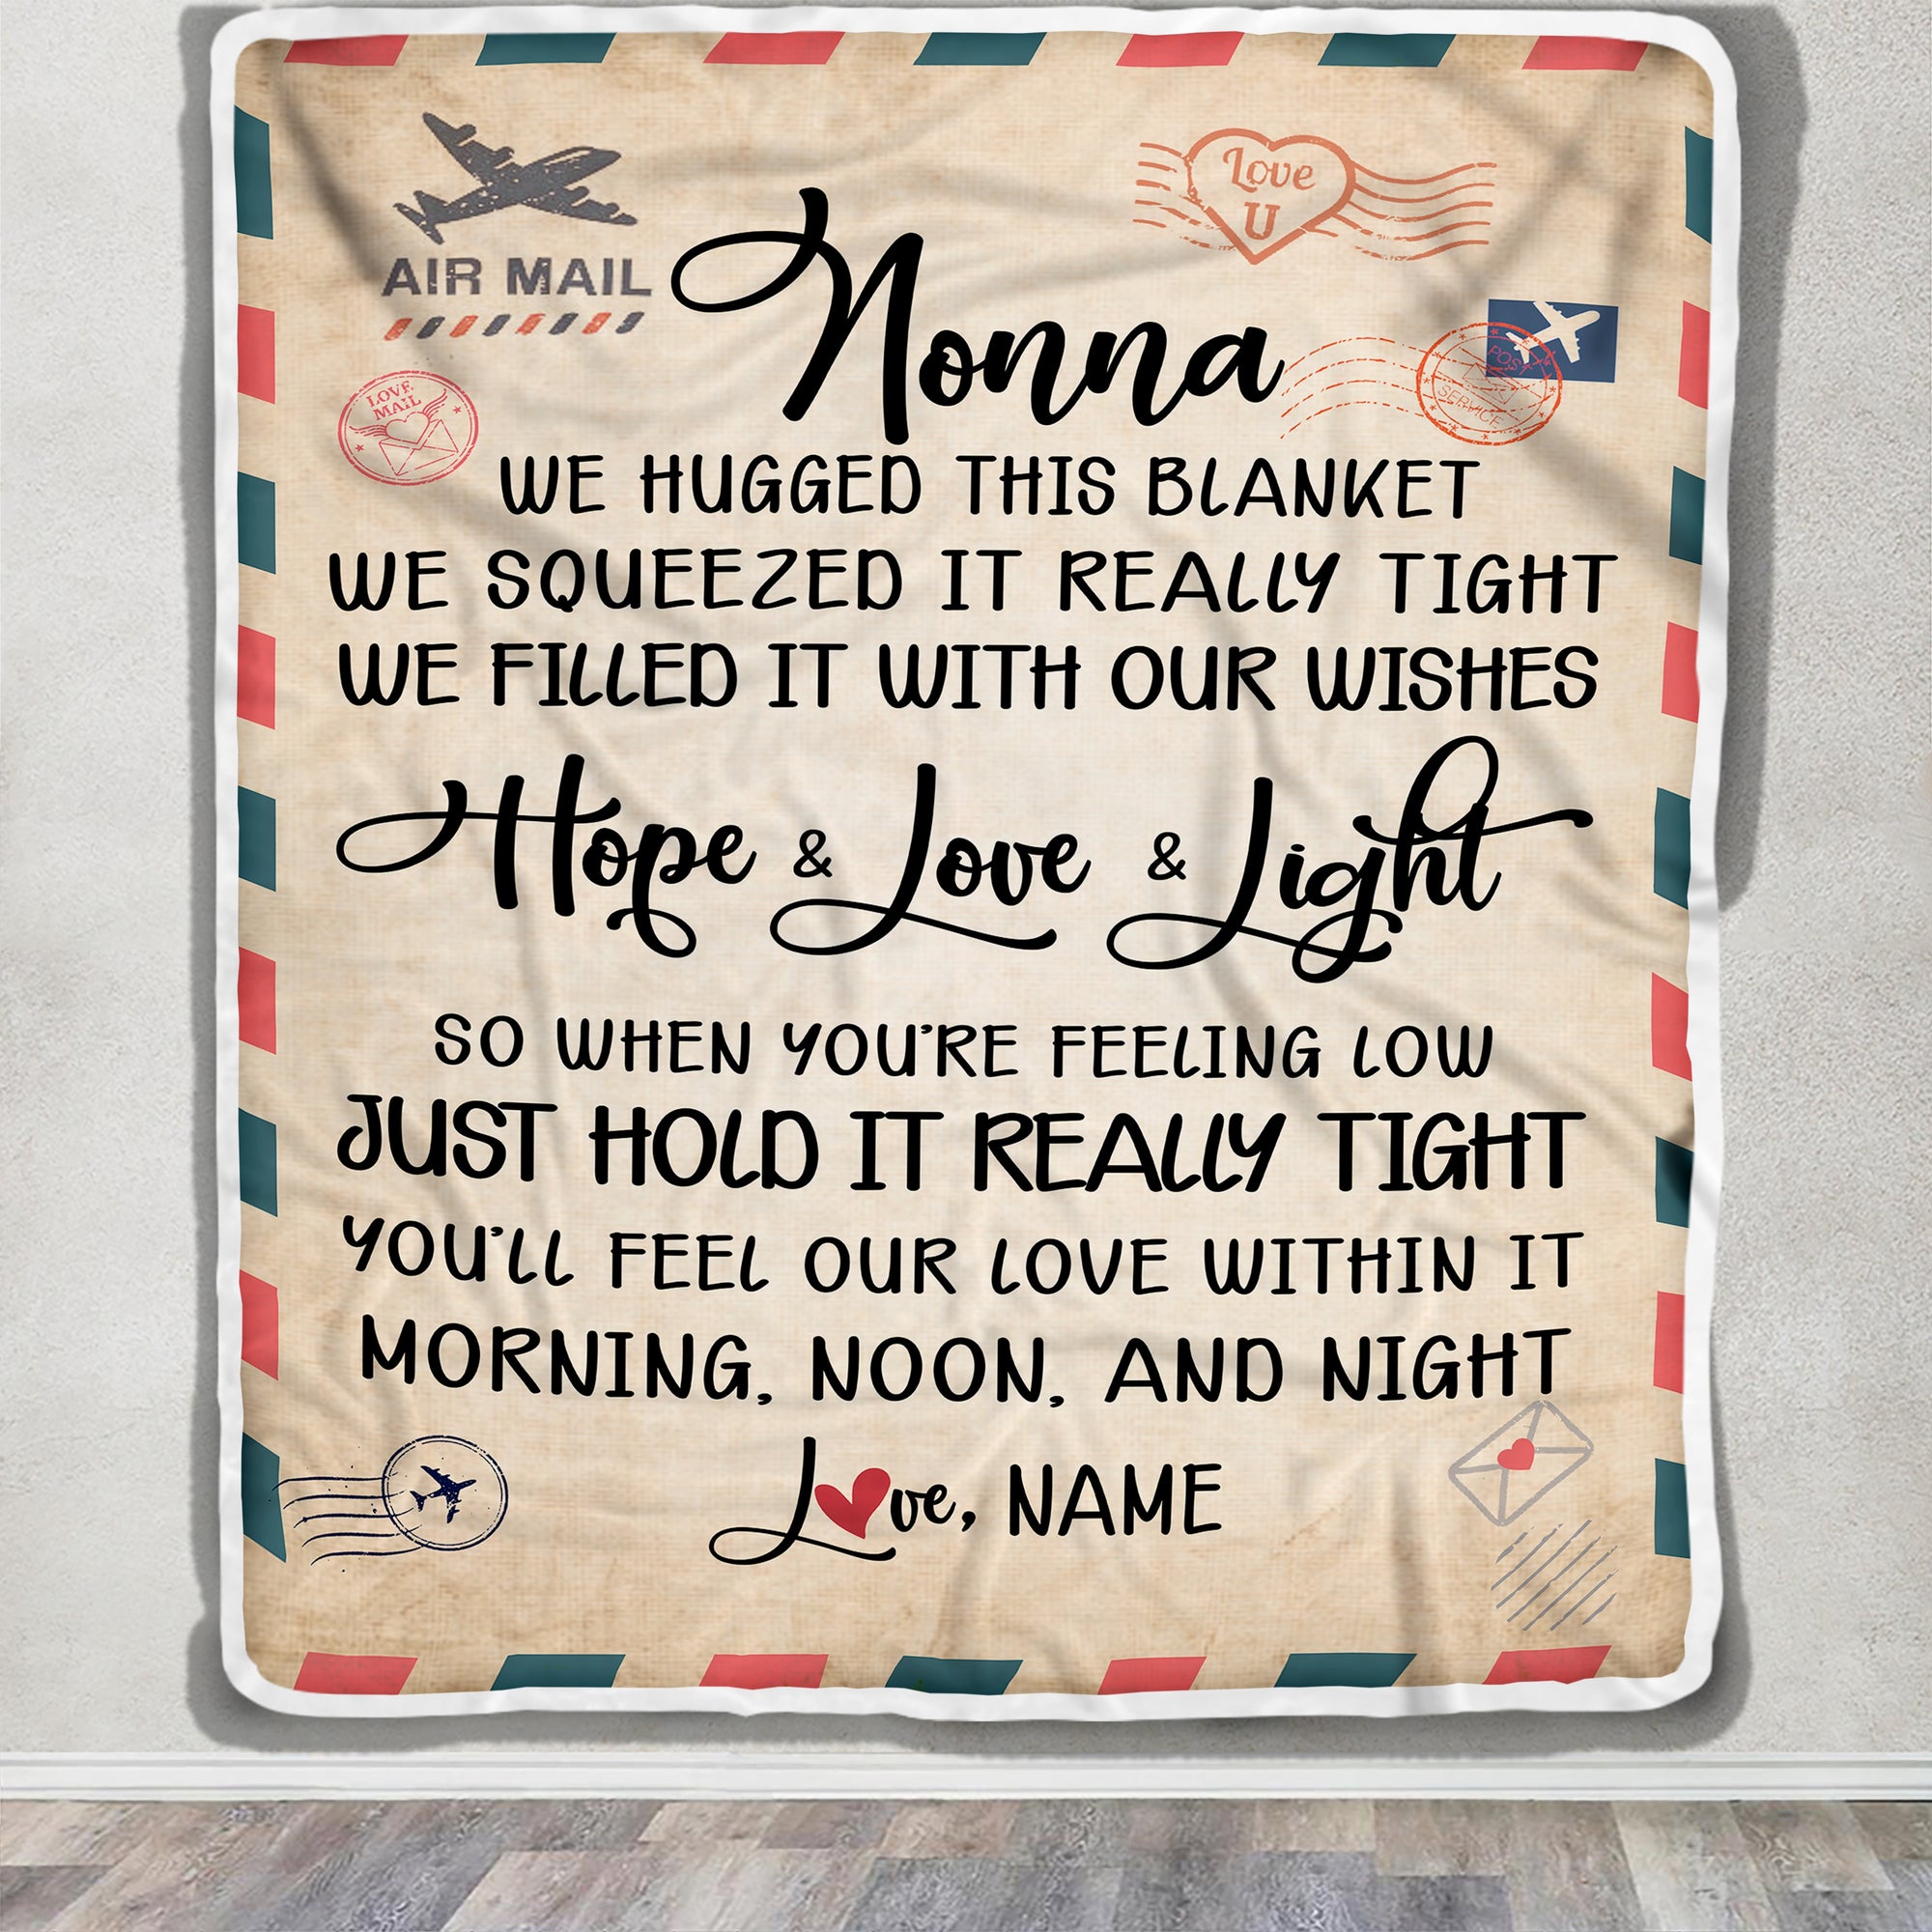 Love
U
AIR MAIL
Nonna
POST
SERVICE
LOVE
MAIL
WE HUGGED THIS BLANKET
WE SQUEEZED IT REALLY TIGHT
WE FILLED IT WITH OUR WISHES
Hope & Love & Light
SO WHEN YOU'RE FEELING LOW
JUST HOLD IT REALLY TIGHT
YOU'LL FEEL OUR LOVE WITHIN IT
MORNING, NOON, AND NIGHT
Love, NAME